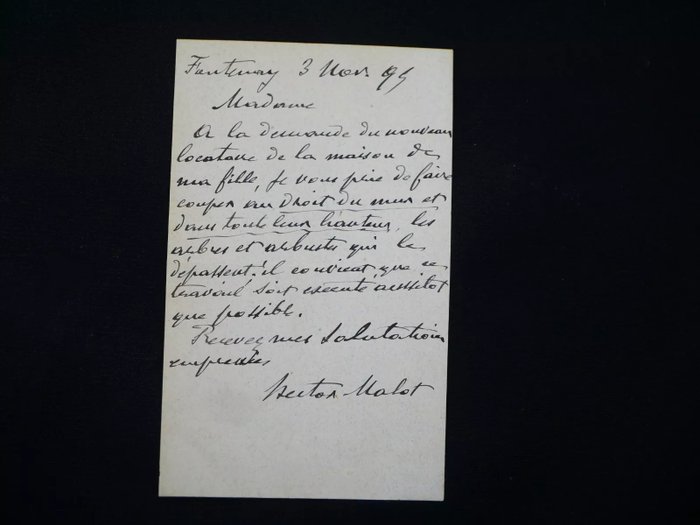 Fontenay 3 Nov 95
Madame
A la demande du nouveau
locataire de la maison de
ma fille, je vous prie de faire
couper au droit du mur et
dans toute leur hauteur, les
arbres et arbustes qui le
dépassent : il convient que ce
travail soit executé aussitot
que possible.
Recevez mes salutations
empressées
Hector Malot